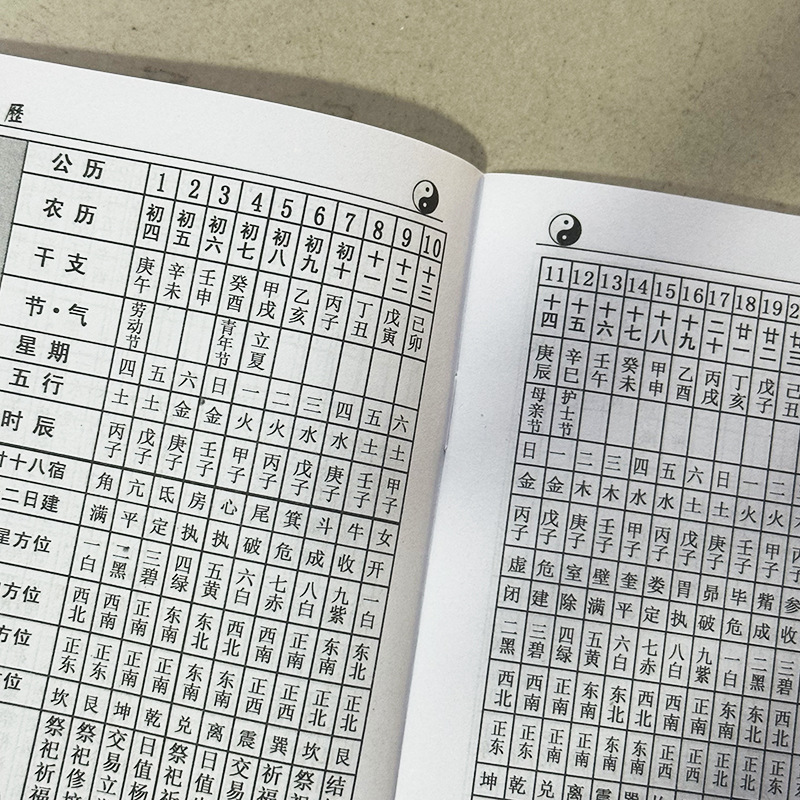 曆
公历 1 2 3 4 5 6 7 8 9 10
农历 初四 初五 初六 初七 初八 初九 初十 十一 十二 十三
干支 庚午 辛未 壬申 癸酉 甲戌 乙亥 丙子 丁丑 戊寅 己卯
节·气 劳动节 青年节 立夏
星期 四 五 六 日 一 二 三 四 五 六
五行 土 土 金 金 火 火 水 水 土 土
时辰 丙子 戊子 庚子 壬子 甲子 丙子 戊子 庚子 壬子 甲子
十八宿 角 亢 氐 房 心 尾 箕 斗 牛 女
二日建 满 平 定 执 执 破 危 成 收 开
星方位 一白 二黑 三碧 四绿 五黄 六白 七赤 八白 九紫 一白
方位 西北 西南 正南 东南 东北 西北 西南 正南 东南 东北
方位 正东 正东 正南 正南 东南 东南 正西 正西 正北 正北
位 坎 艮 坤 乾 兑 离 震 巽 坎 艮
祭祀祈福 祭祀修 交易立 日值杨 祭祀祈 日值 交易 祈福 祭 结
11 12 13 14 15 16 17 18 19 2
十四 十五 十六 十七 十八 十九 二十 廿一 廿二 廿三
庚辰 辛巳 壬午 癸未 甲申 乙酉 丙戌 丁亥 戊子
母亲节 护士节
日 一 二 三 四 五 六 日 一 二
金 金 木 木 水 水 土 土 火 火
丙子 戊子 庚子 壬子 甲子 丙子 戊子 庚子 壬子 甲子 丙子
虚 危 室 壁 奎 娄 胃 昴 毕 觜 参
闭 建 除 满 平 定 执 破 危 成 收
二黑 三碧 四绿 五黄 六白 七赤 八白 九紫 一白 二黑 三碧
西北 西南 正南 东南 东北 西北 西南 正南 东南 东北 西北
正东 正东 正南 正南 东南 东南 正西 正西 正北 正北
坤 乾 兑 离 震 巽 坎 艮